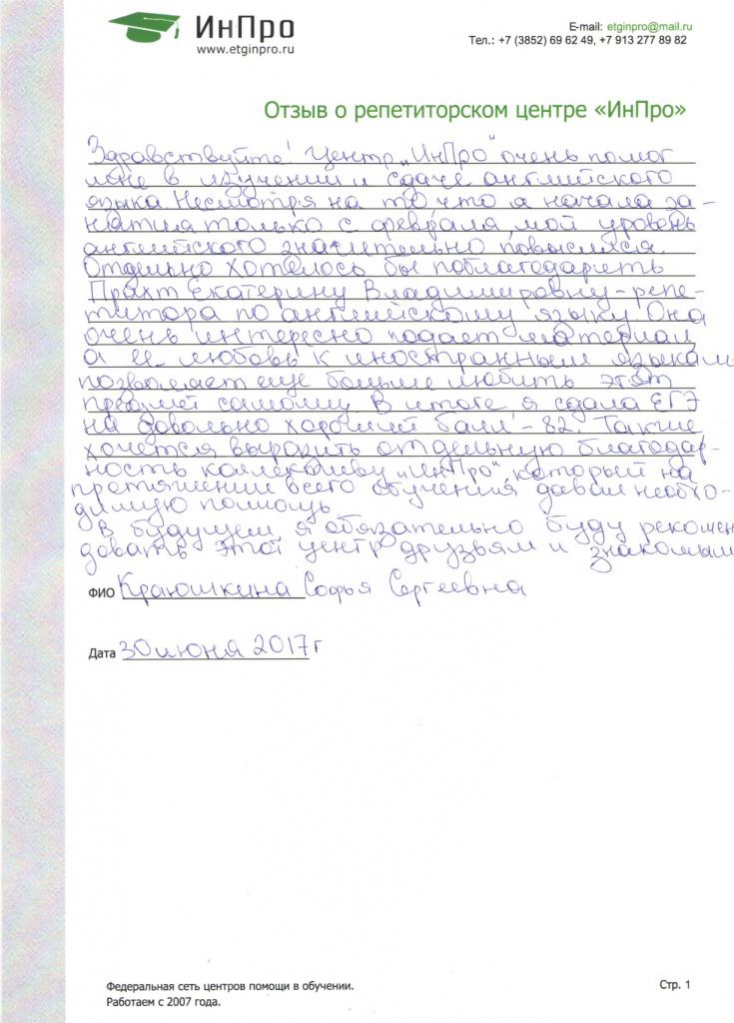 ИнПро
www.etginpro.ru
E-mail: etginpro@mail.ru
Тел.: +7 (3852) 69 62 49, +7 913 277 89 82
Отзыв о репетиторском центре «ИнПро»
Здравствуйте! Центр „ИнПро" очень помог
мне в изучении и сдаче английского
языка. Несмотря на то что я начала за-
нятия только с февраля, мой уровень
английского значительно повысился.
Отдельно хотелось бы поблагодарить
Прахт Екатерину Владимировну - репе-
титора по английскому языку. Она
очень интересно подает материал,
а её любовь к иностранным языкам
позволяет еще больше любить этот
предмет самому. В итоге я сдала ЕГЭ
на довольно хороший балл - 82. Также
хочется выразить отдельную благодар-
ность коллективу „ИнПро", который на
протяжении всего обучения давал необхо-
димую помощь.
В будущем я обязательно буду рекомен
довать этот центр друзьям и знакомым
ФИО Краюшкина Софья Сергеевна
Дата 30 июня 2017 г
Федеральная сеть центров помощи в обучении.
Работаем с 2007 года.
Стр. 1